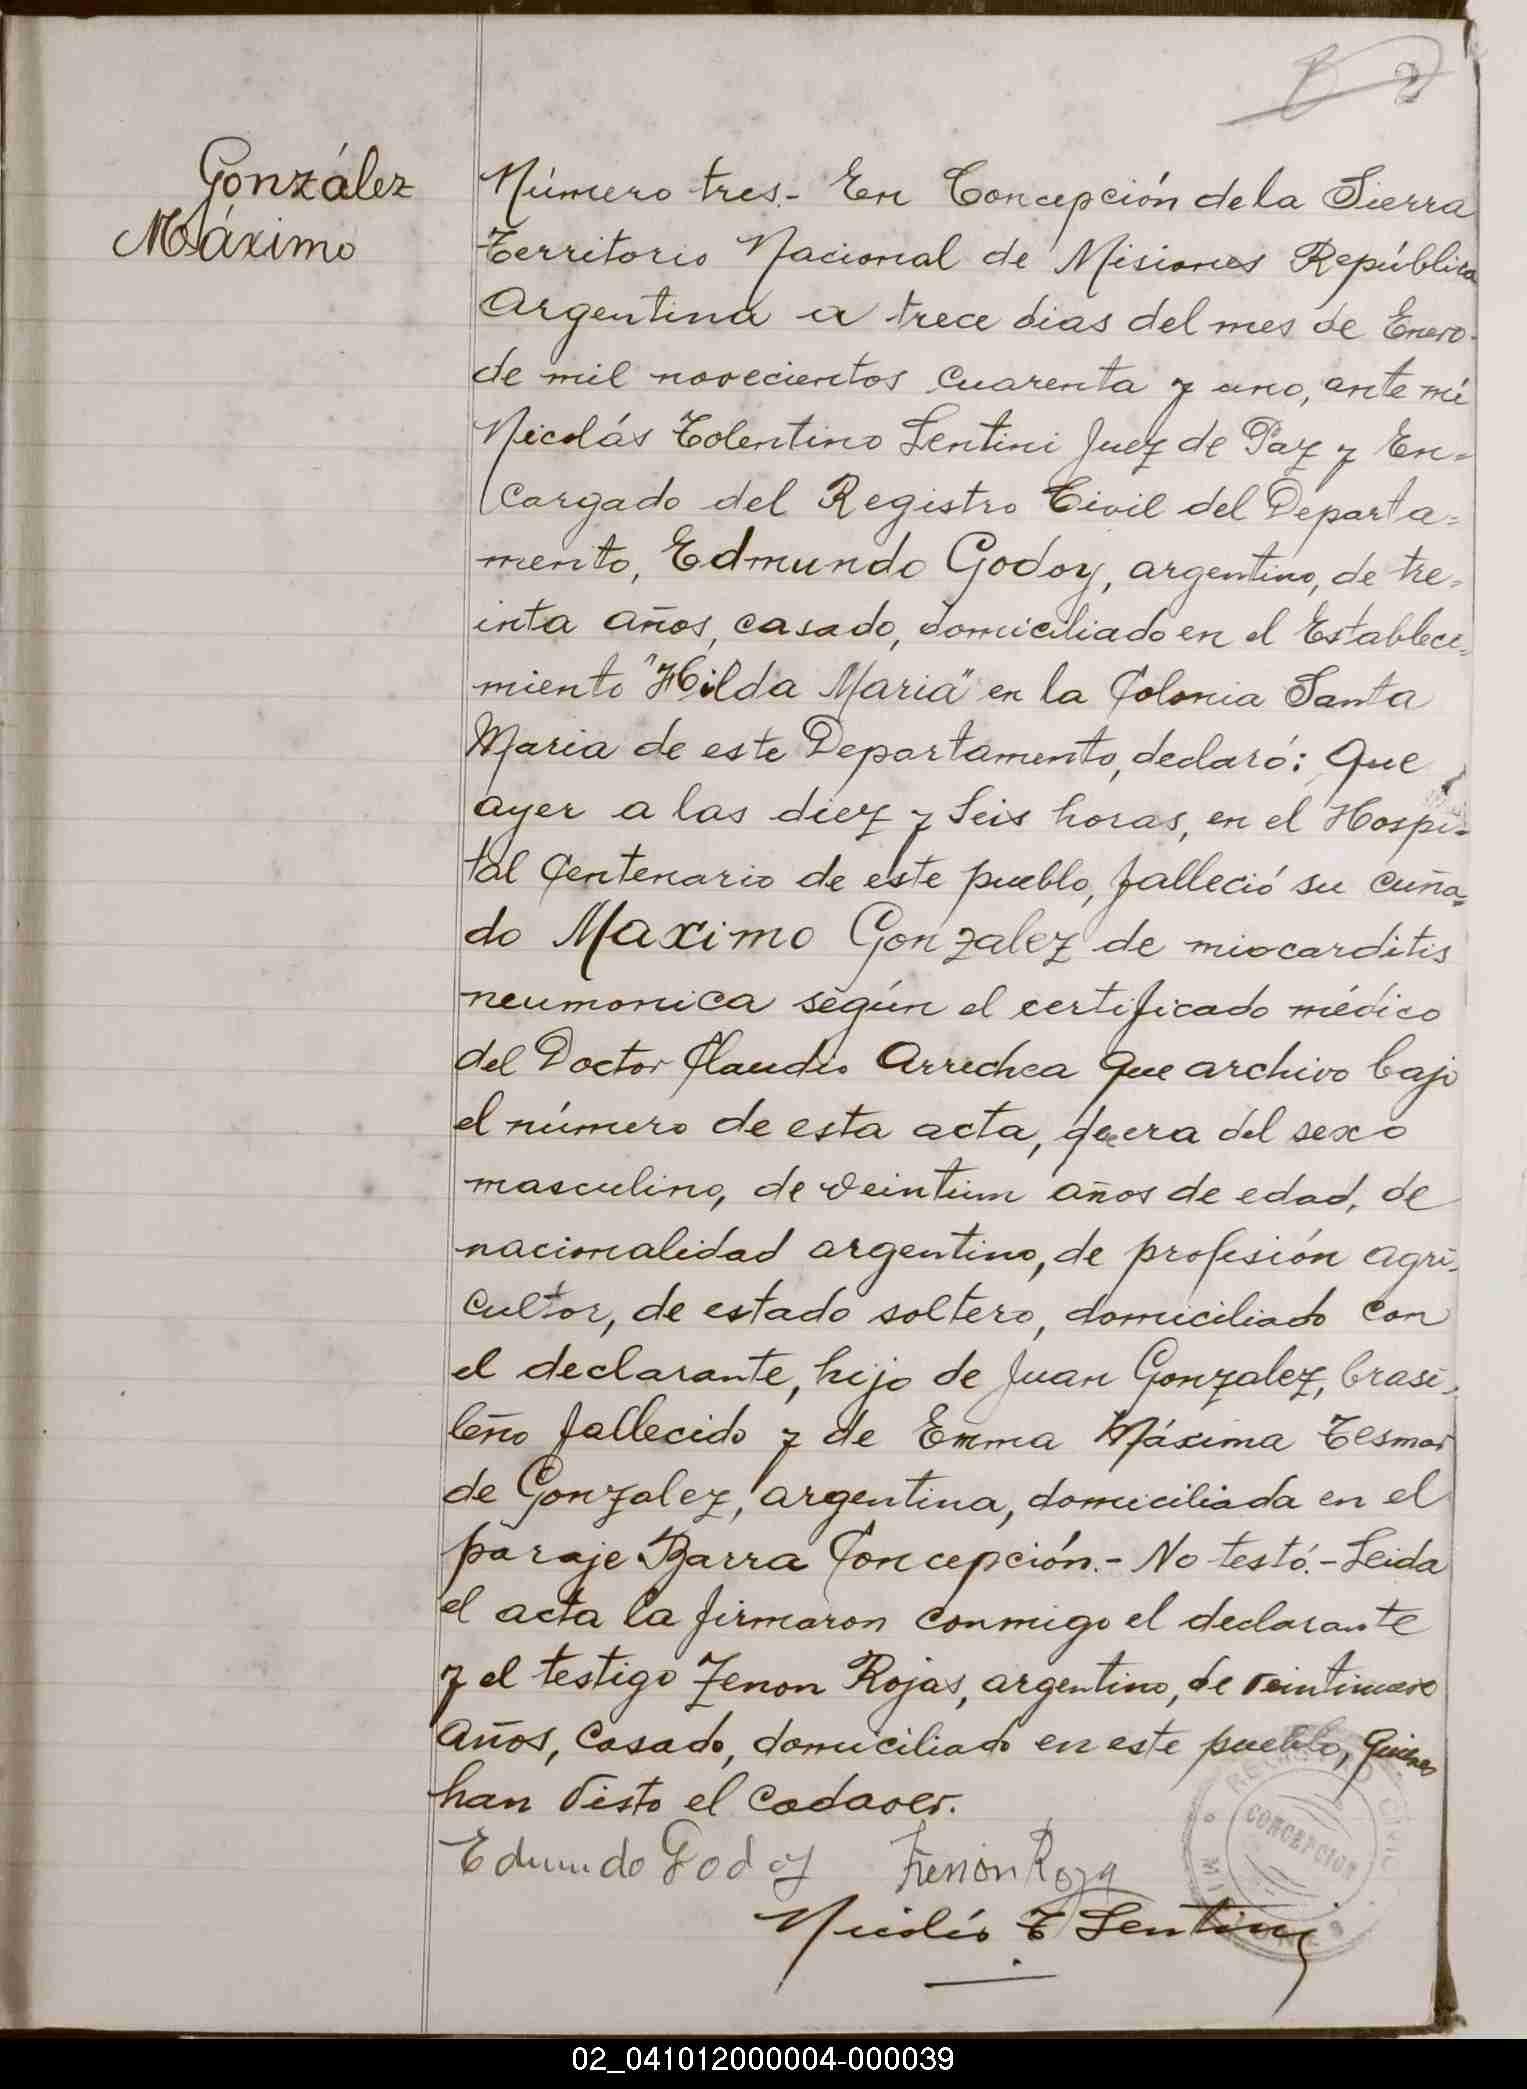 González
Máximo
Número tres.- En Concepción de la Sierra
Territorio Nacional de Misiones República
Argentina a trece dias del mes de Enero
de mil novecientos cuarenta y uno, ante mi
Nicolás Tolentino Lentini Juez de Paz y En=
cargado del Registro Civil del Departa=
mento, Edmundo Godoy, argentino, de tre=
inta años, casado, domiciliado en el Estableci=
miento "Hilda Maria" en la Colonia Santa
Maria de este Departamento, declaró: Que
ayer a las diez y seis horas, en el Hospi=
tal Centenario de este pueblo, falleció su cuña=
do Maximo Gonzalez de miocarditis
neumonica según el certificado médico
del Doctor Claudio Arrechea que archivo bajo
el número de esta acta, que era del sexo
masculino, de veintiun años de edad, de
nacionalidad argentino, de profesión agri=
cultor, de estado soltero, domiciliado con
el declarante, hijo de Juan Gonzalez, brasi=
leño fallecido y de Emma Máxima Tesmar
de Gonzalez, argentina, domiciliada en el
paraje Barra Concepción.- No testó.- Leida
el acta la firmaron conmigo el declarante
y el testigo Zenon Rojas, argentino, de veintinueve
años, casado, domiciliado en este pueblo, quienes
han visto el cadaver.
Edmundo Godoy
Nicolás T Lentini
REGISTRO CIVIL
CONCEPCION
MISIONES
02_041012000004-000039